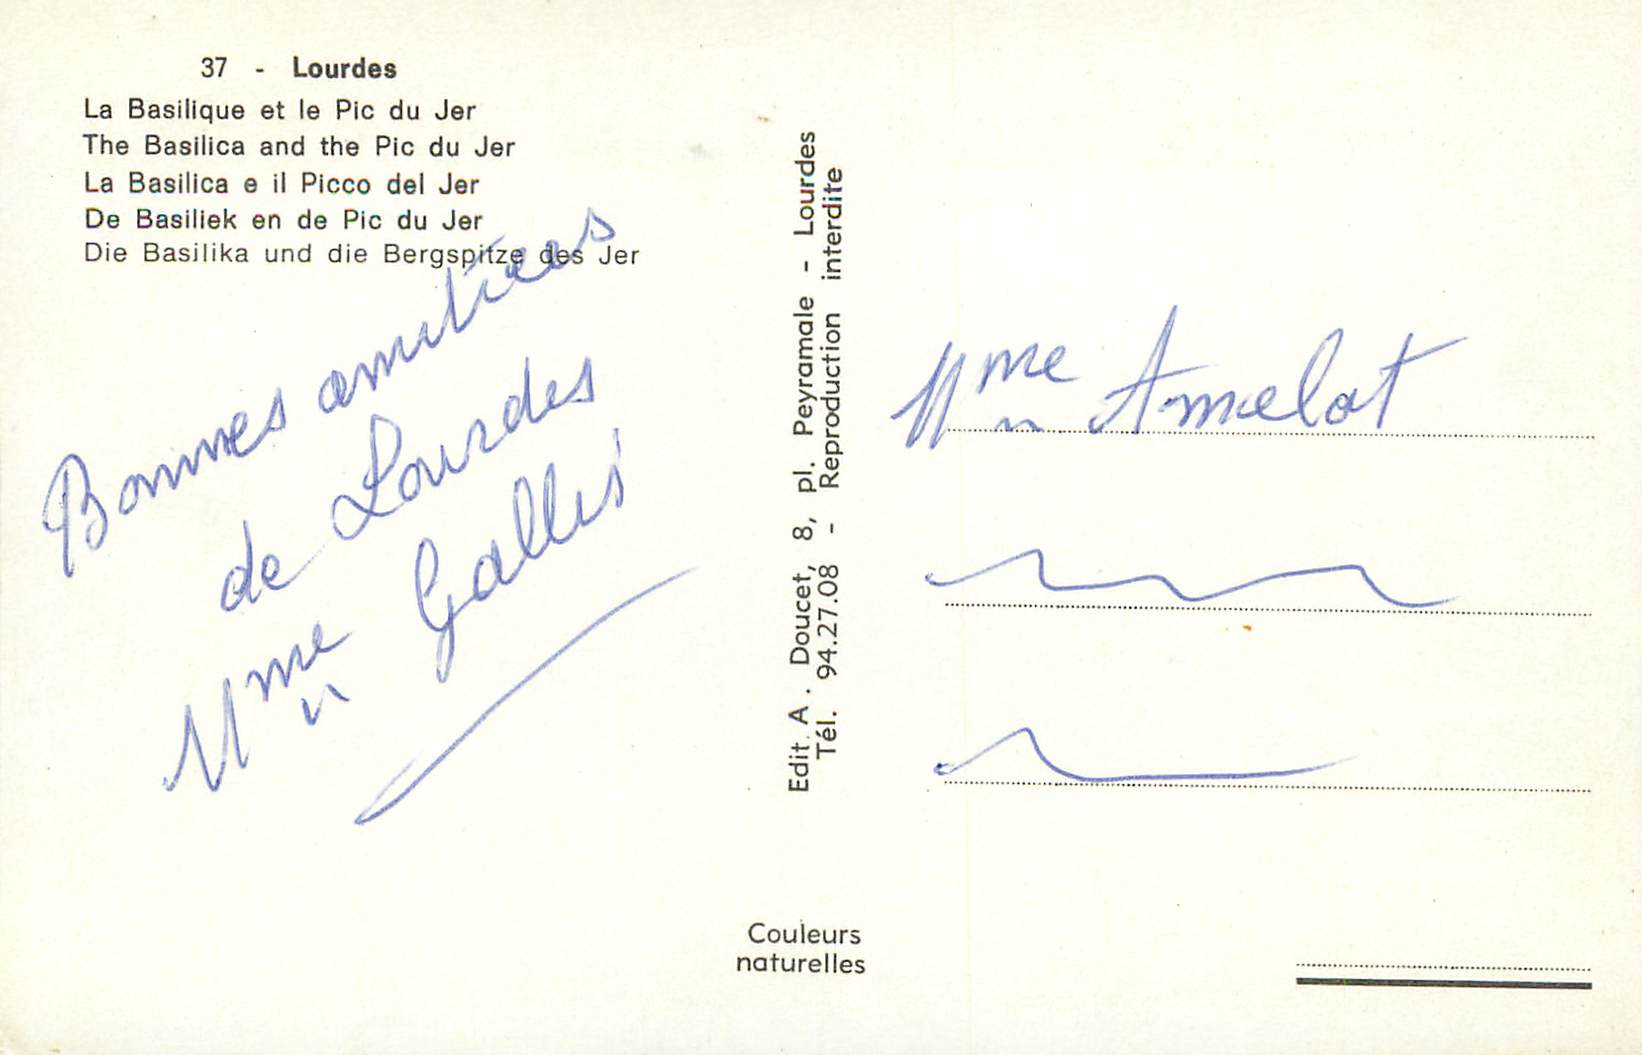 37 - Lourdes
La Basilique et le Pic du Jer
The Basilica and the Pic du Jer
La Basilica e il Picco del Jer
De Basiliek en de Pic du Jer
Die Basilika und die Bergspitze des Jer
Bonnes amitiées
de Lourdes
Mme Gallis
Edit. A. Doucet, 8, pl. Peyramale - Lourdes
Tél. 94.27.08 - Reproduction interdite
Mme Amelot
Couleurs
naturelles